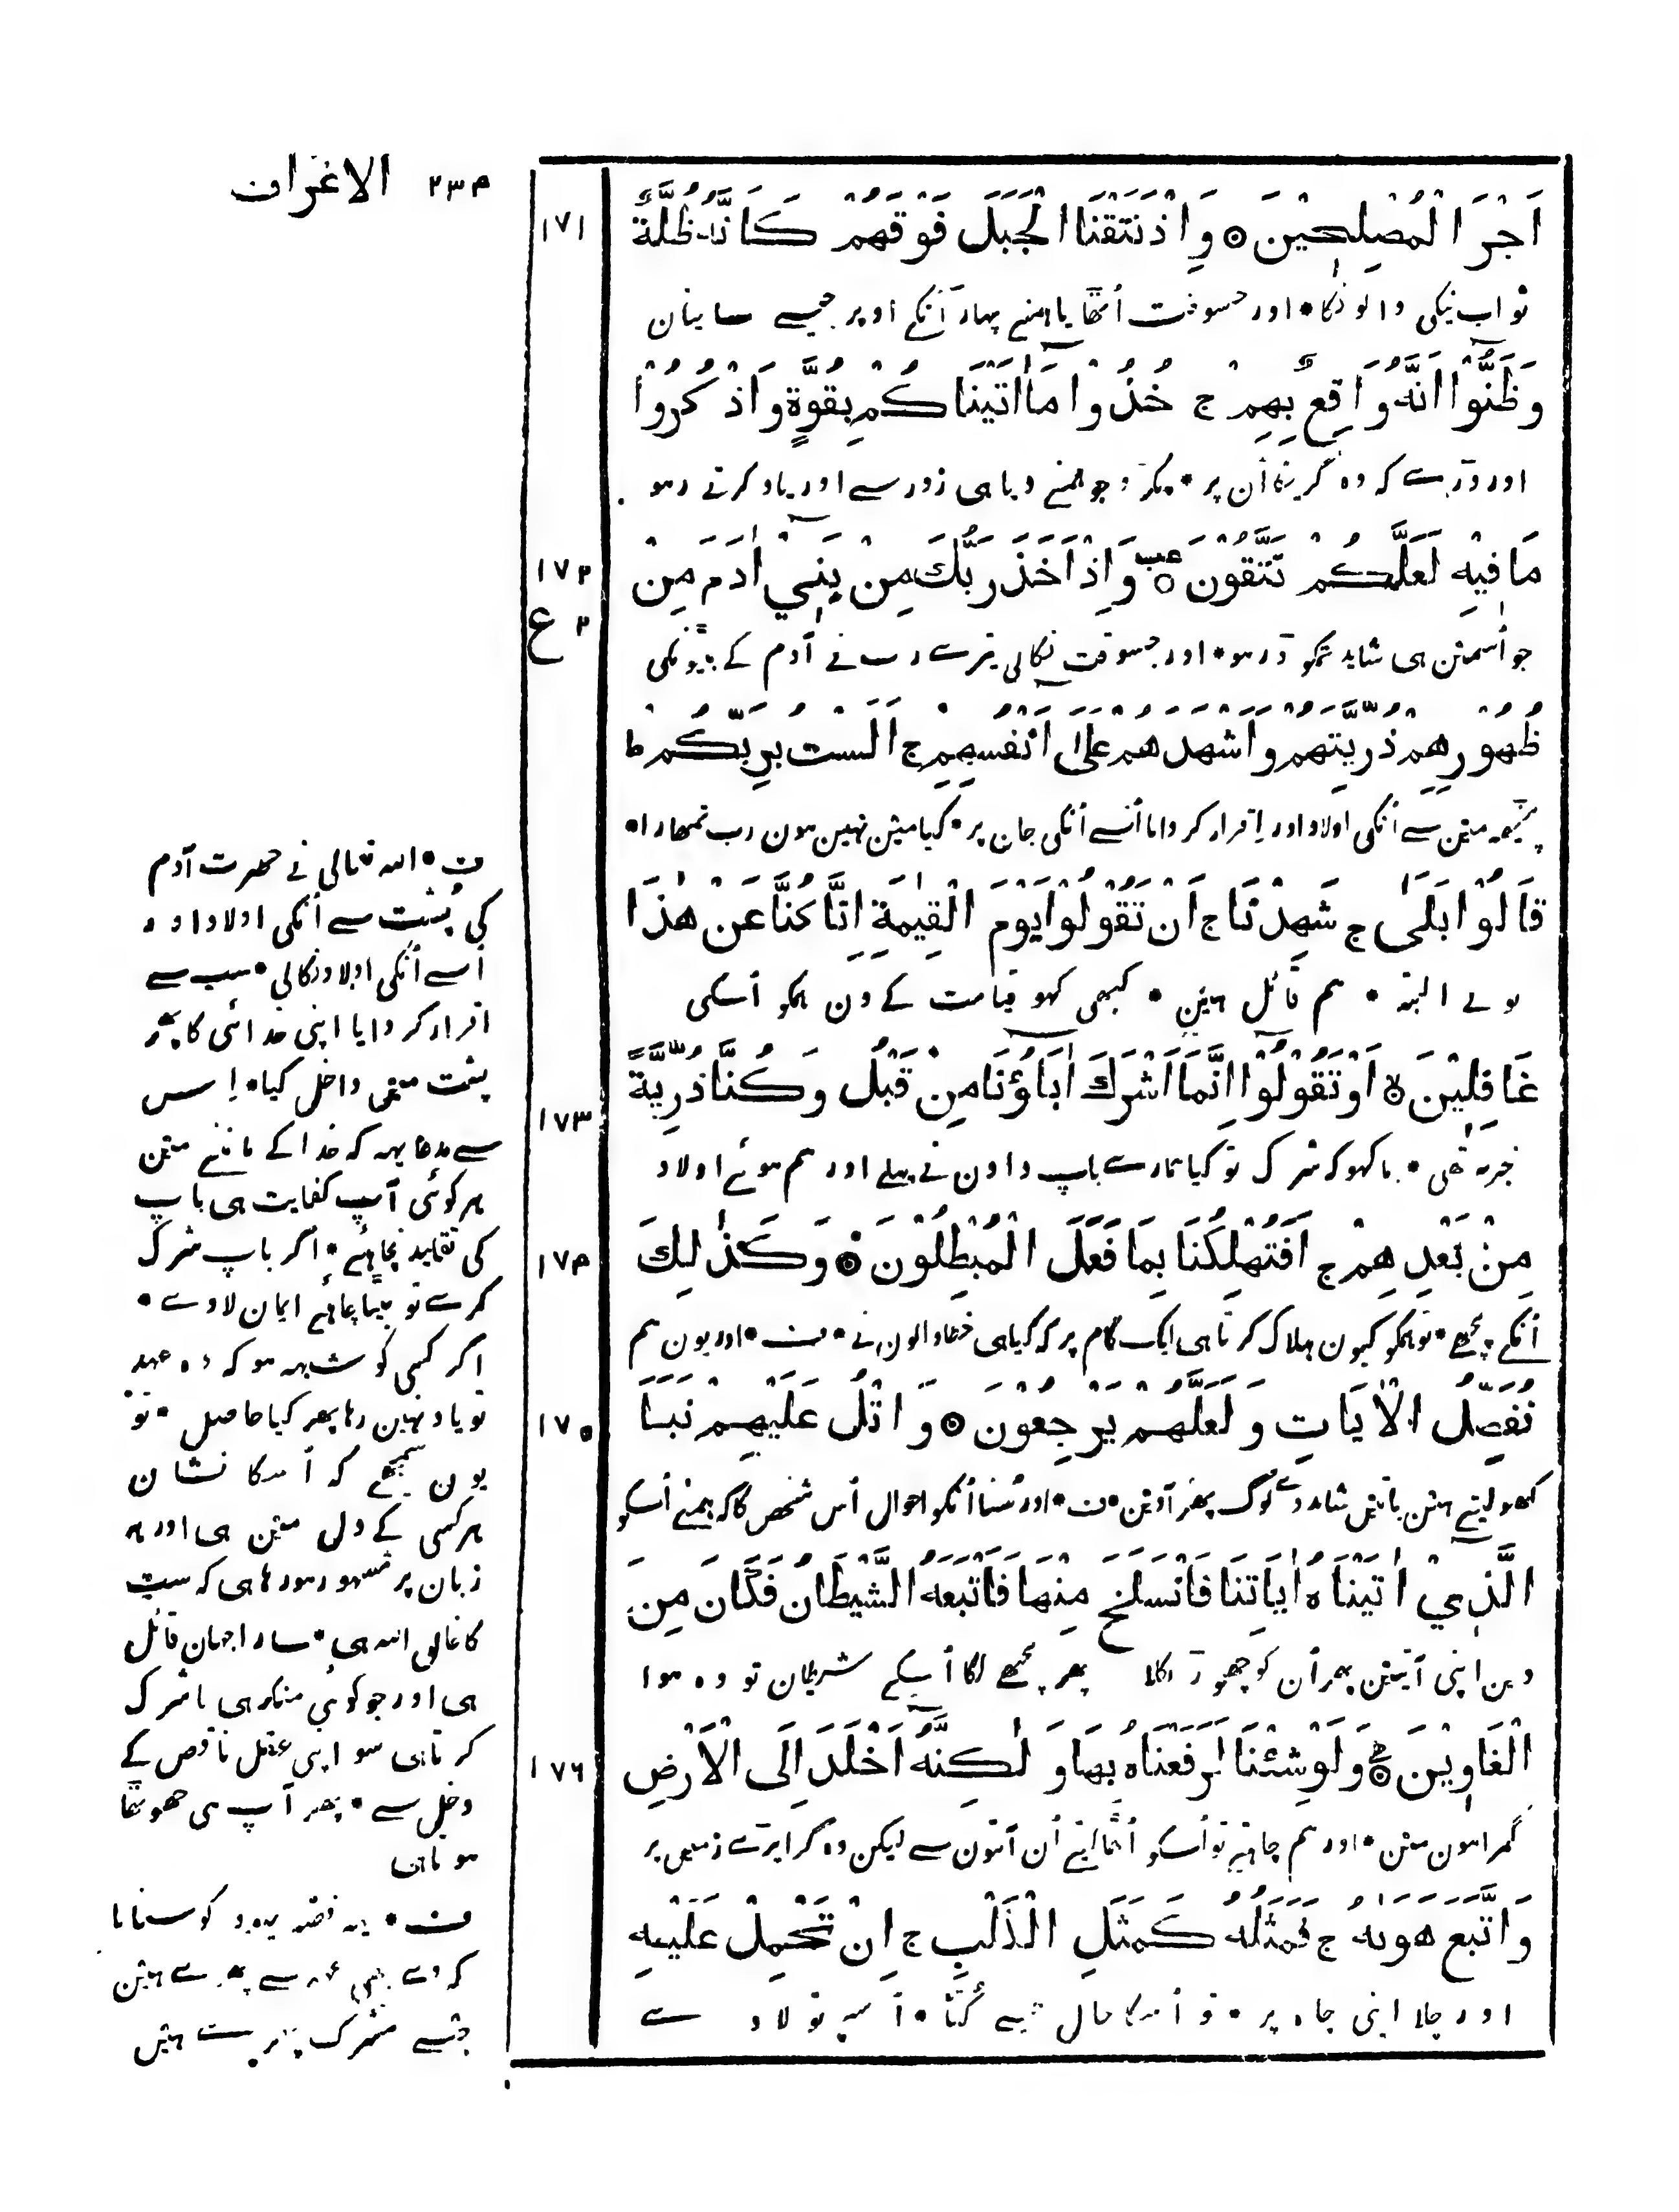 ٢٣٤ الاعراف
١٧١
اَجْرَ الْمُصْلِحِيْنَ ۞ وَاِذْ نَتَقْنَا الْجَبَلَ فَوْقَهُمْ كَاَنَّهُ ظُلَّةٌ
ثواب نیکی والونکا • اور جسوقت اُٹھایا ہمنے پہاڑ اُنکے اوپر جیسے سایبان
وَظَنُّوْا اَنَّهُ وَاقِعٌ بِهِمْ ج خُذُوْا مَا اٰتَيْنَاكُمْ بِقُوَّةٍ وَاذْكُرُوْا
اور ڈرے کہ وہ گریگا اُن پر • پکڑو جو ہمنے دیا ہی زور سے اور یاد کرتے رہو
١٧٢
٢ ع
مَا فِيْهِ لَعَلَّكُمْ تَتَّقُوْنَ ۞ وَاِذْ اَخَذَ رَبُّكَ مِنْ بَنِيْ اٰدَمَ مِنْ
جو اُسمین ہی شاید تمکو ڈر ہو • اور جسوقت نکالی تیرے رب نے آدم کے بیٹونکی
ظُهُوْرِهِمْ ذُرِّيَّتَهُمْ وَاَشْهَدَهُمْ عَلٰى اَنْفُسِهِمْ ج اَلَسْتُ بِرَبِّكُمْ ط
پیٹھہ مین سے اُنکی اولاد اور اِقرار کروایا اُنسے اُنکی جان پر • کیا مین نہین ہون رب تمھارا •
قَالُوْا بَلٰى ج شَهِدْنَا ج اَنْ تَقُوْلُوْا يَوْمَ الْقِيٰمَةِ اِنَّا كُنَّا عَنْ هٰذَا
بولے البتہ • ہم قائل ہین • کبھی کہو قیامت کے دن ہمکو اُسکی
١٧٣
غَافِلِيْنَ ۞ اَوْ تَقُوْلُوْا اِنَّمَا اَشْرَكَ اٰبَاؤُنَا مِنْ قَبْلُ وَكُنَّا ذُرِّيَّةً
خبر نہ تھی • یا کہو کہ شرک تو کیا ہمارے باپ دادون نے پہلے اور ہم ہوئے اولاد
١٧٤
مِنْ بَعْدِهِمْ ج اَفَتُهْلِكُنَا بِمَا فَعَلَ الْمُبْطِلُوْنَ ۞ وَكَذٰلِكَ
اُنکے پیچھے • تو ہمکو کیون ہلاک کرتا ہی ایک کام پر کہ کیا ہی خطاوالون نے • ف • اور یون ہم
١٧٥
نُفَصِّلُ الْاٰيَاتِ وَلَعَلَّهُمْ يَرْجِعُوْنَ ۞ وَاتْلُ عَلَيْهِمْ نَبَاَ
کھولتے ہین باتین شاید وے لوگ پھر آوین • ف • اور سُنا اُنکو احوال اُس شخص کا کہ ہمنے اُسکو
الَّذِيْ اٰتَيْنَاهُ اٰيَاتِنَا فَانْسَلَخَ مِنْهَا فَاَتْبَعَهُ الشَّيْطَانُ فَكَانَ مِنَ
دین اپنی آیتین پھر اُن کو چھوڑ نکلا پھر پیچھے لگا اُسکے شیطان تو وہ ہوا
١٧٦
الْغَاوِيْنَ ۞ وَلَوْ شِئْنَا لَرَفَعْنَاهُ بِهَا وَلٰكِنَّهُ اَخْلَدَ اِلَى الْاَرْضِ
گمراہون مین • اور ہم چاہتے تو اُسکو اُٹھا لیتے اُن آیتون سے لیکن وہ گرا پڑے زمین پر
وَاتَّبَعَ هَوٰىهُ ج فَمَثَلُهُ كَمَثَلِ الْكَلْبِ ج اِنْ تَحْمِلْ عَلَيْهِ
اور چلا اپنی چاہ پر • تو اُسکا حال جیسے کُتّا • اُسپر تو لادے
ف • اللہ تعالی نے حضرت آدم
کی پُشت سے اُنکی اولاد اور
اُنسے اُنکی اولاد نکالی • سب سے
اقرار کروایا اپنی خدائی کا پھر
پشت مین داخل کیا • اِس
سے مدعا یہہ کہ خدا کے ماننے مین
ہر کوئی آپ کفایت ہی باپ
کی تقلید نچاہئے • اگر باپ شرک
کرے تو بیٹا چاہئے ایمان لاوے •
اگر کسی کو شبہہ ہو کہ وہ عہد
تو یاد نہین رہا پھر کیا حاصل • تو
یون سمجھے کہ اُسکا نشان
ہر کسی کے دل مین ہی اور ہر
زبان پر مشہور ہو رہا ہی کہ سب
کا خالق اللہ ہی • سارا جہان قائل
ہی اور جو کوئی منکر ہی یا شرک
کرتا ہی سو اپنی عقل ناقص کے
دخل سے • پھر آپ ہی جھوٹھا
ہوتا ہی
ف • یہہ قصہ یہود کو سنایا
کہ وے بھی عہد سے پھرے ہین
جیسے مشرک پھرے ہین